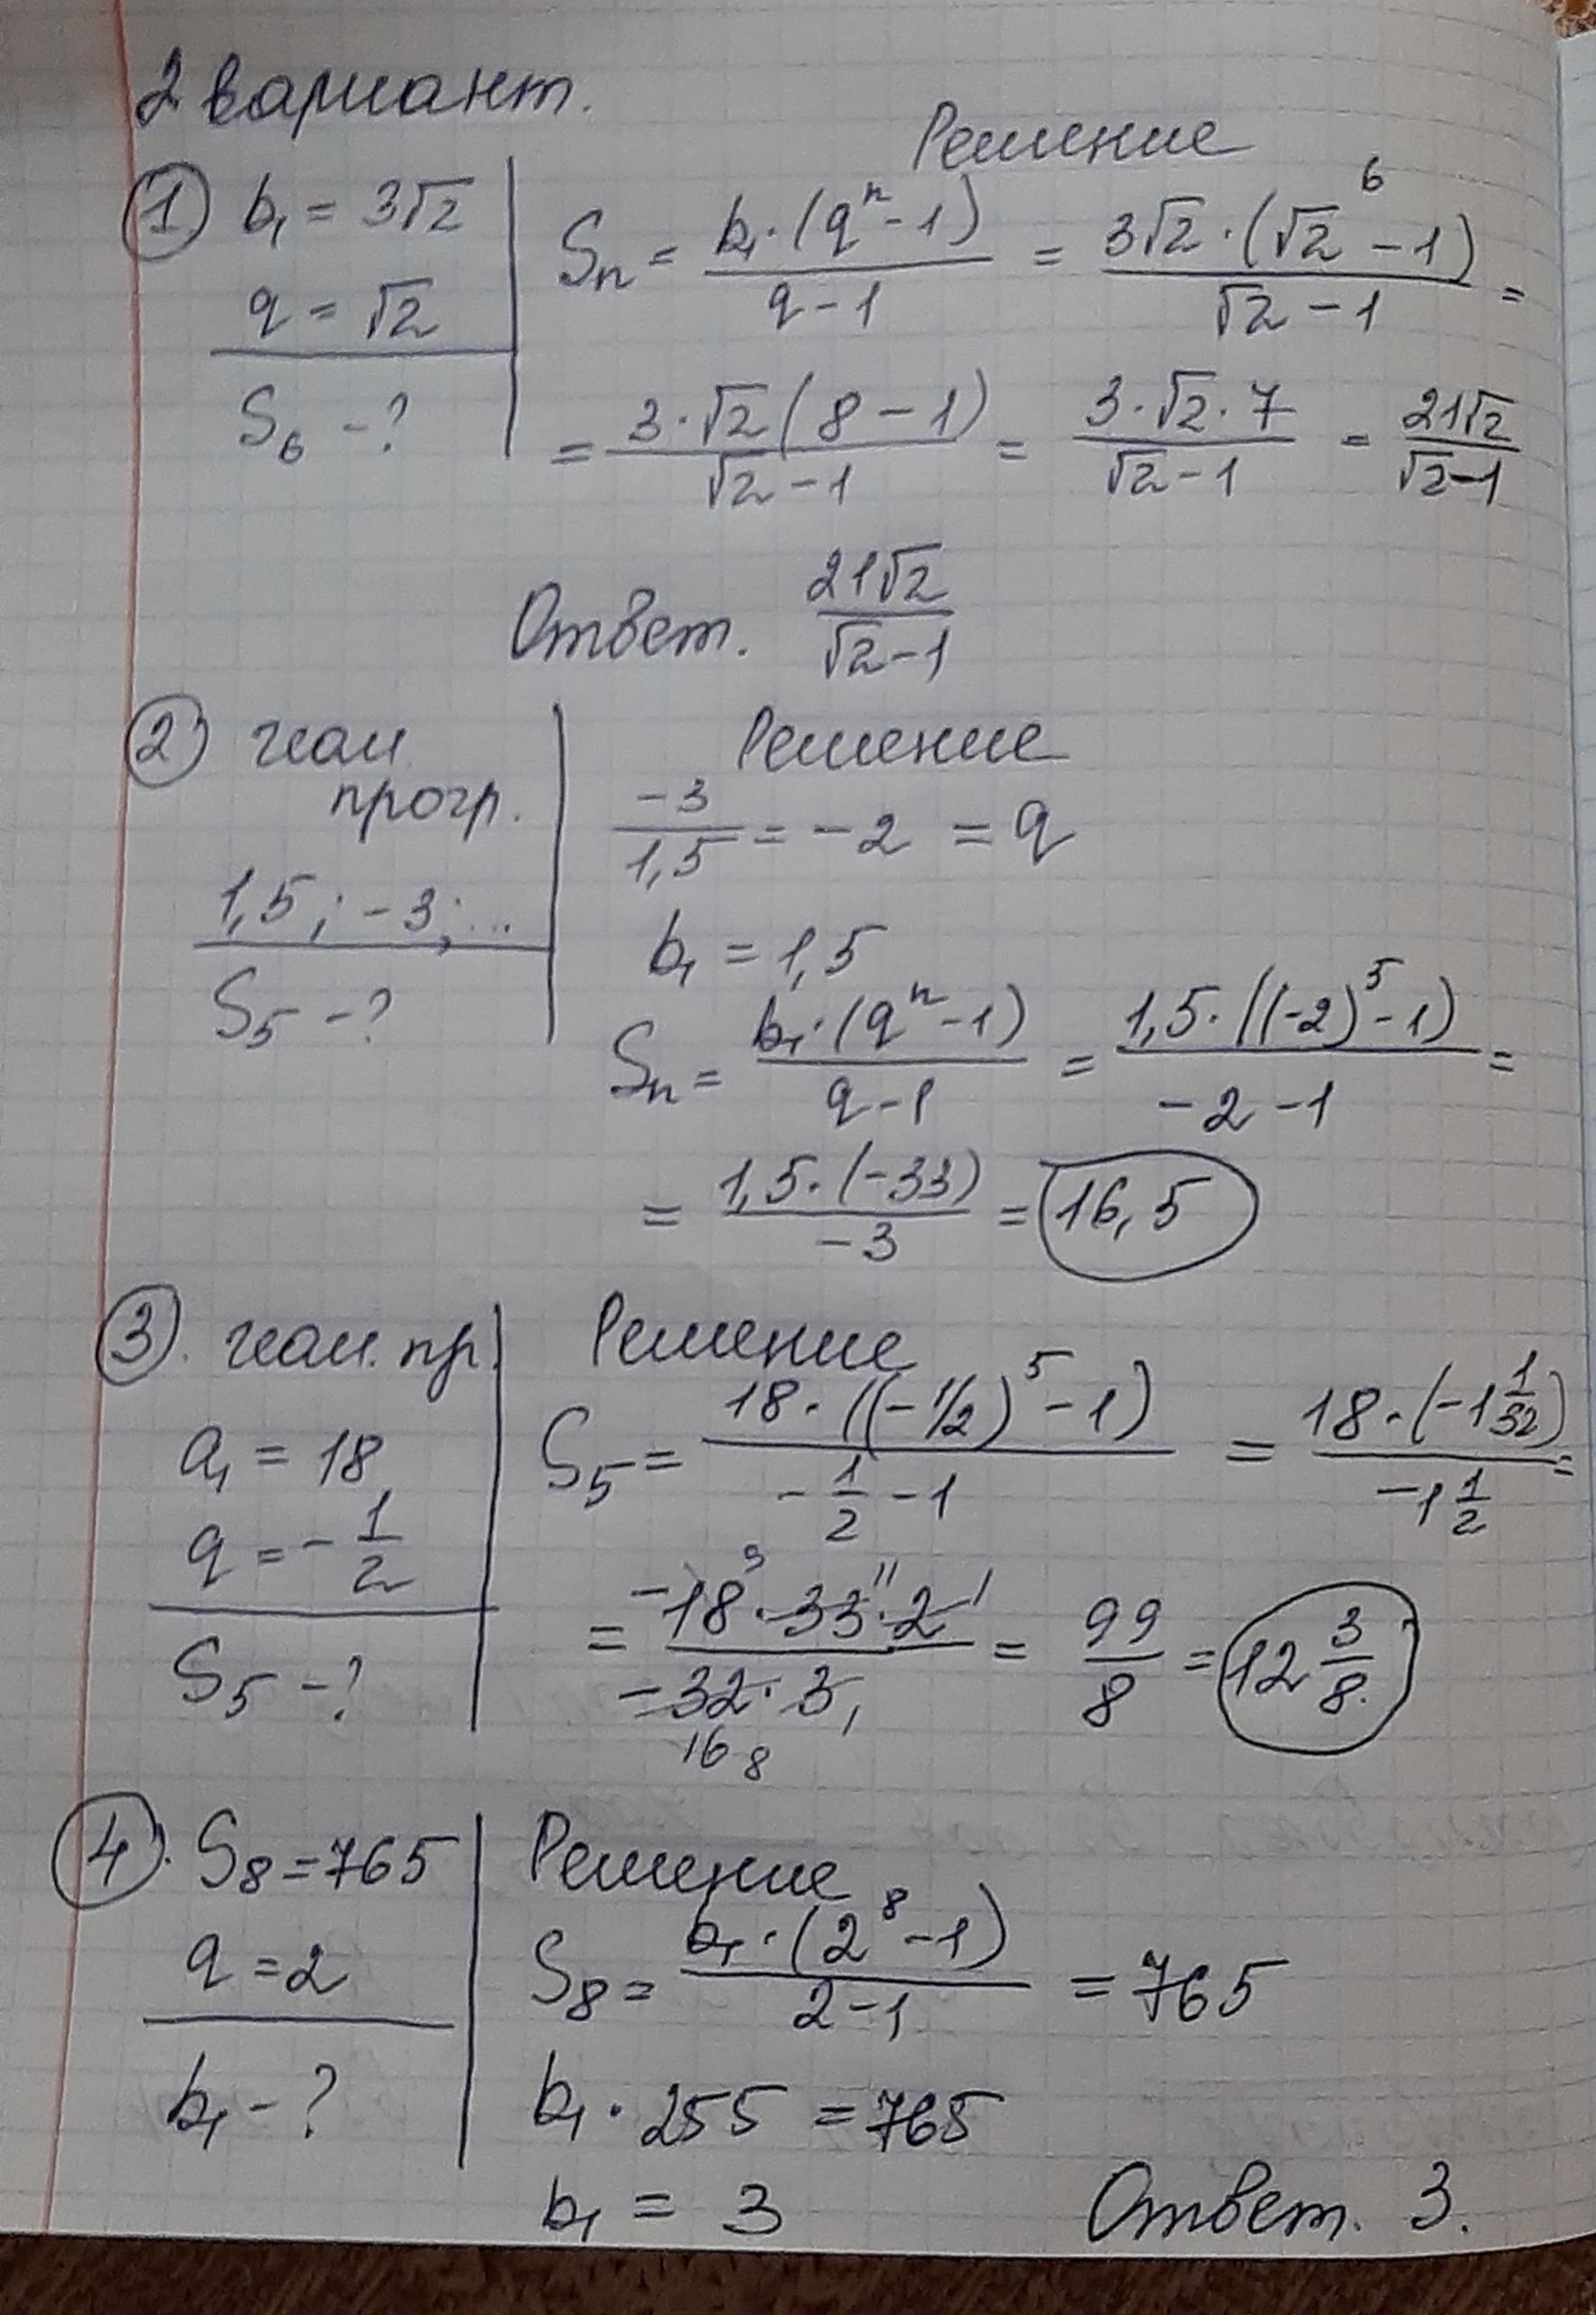 2 вариант.
Решение
1 b₁ = 3√2
q = √2
S₆ - ?
Sₙ = b₁·(qⁿ-1) / q-1 = 3√2·(√2⁶ - 1) / √2 - 1 =
= 3·√2(8-1) / √2-1 = 3·√2·7 / √2-1 = 21√2 / √2-1
Ответ. 21√2 / √2-1
2 геом.
прогр.
1,5; -3; ...
S₅ - ?
Решение
-3 / 1,5 = -2 = q
b₁ = 1,5
Sₙ = b₁·(qⁿ-1) / q-1 = 1,5·((-2)⁵-1) / -2-1 =
= 1,5·(-33) / -3 = 16,5
3. геом. пр.
a₁ = 18
q = - 1/2
S₅ - ?
Решение
S₅ = 18·((-1/2)⁵-1) / - 1/2 - 1 = 18·(-1 1/32) / -1 1/2 =
= -18⁹·33¹¹·2¹ / -32·3₁ 16 8 = 99/8 = 12 3/8
4. S₈ = 765
q = 2
b₁ - ?
Решение
S₈ = b₁·(2⁸-1) / 2-1 = 765
b₁·255 = 765
b₁ = 3
Ответ. 3.